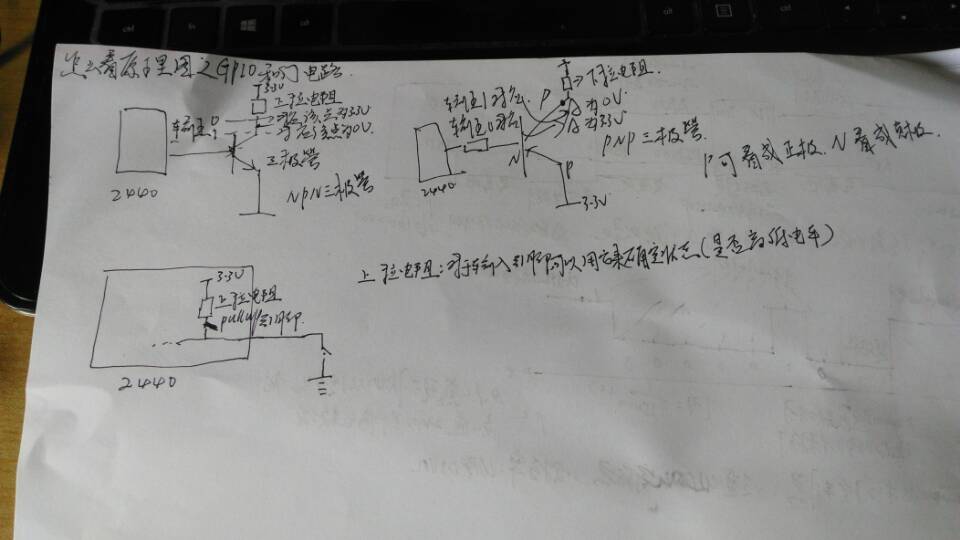 怎么看原理图之GPIO和门电路.
3.3V
上拉电阻
输出0 对应该点为3.3V
1 对应该点为0V.
三极管
NPN三极管
2440
下拉电阻.
输出1对应 P
A为0V.
输出0对应
A为3.3V
N
PNP三极管.
P
2440
3.3V
P可看成正极. N看成负极.
上拉电阻:对于输入引脚可以用来确定状态(是否高/低电平)
3.3V
上拉电阻
pullup
2440